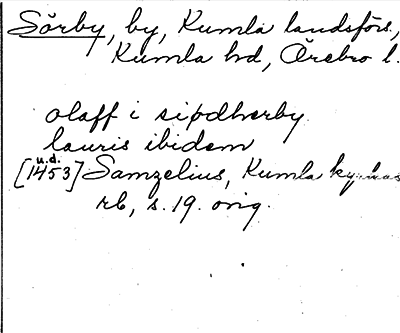 Sörby, by, Kumla landsförs.,
Kumla hd, Örebro l.
olaff i sipdherby
lauris ibidem
u.d.
[1453] Samzelius, Kumla ky:kas
rb, s. 19. orig.